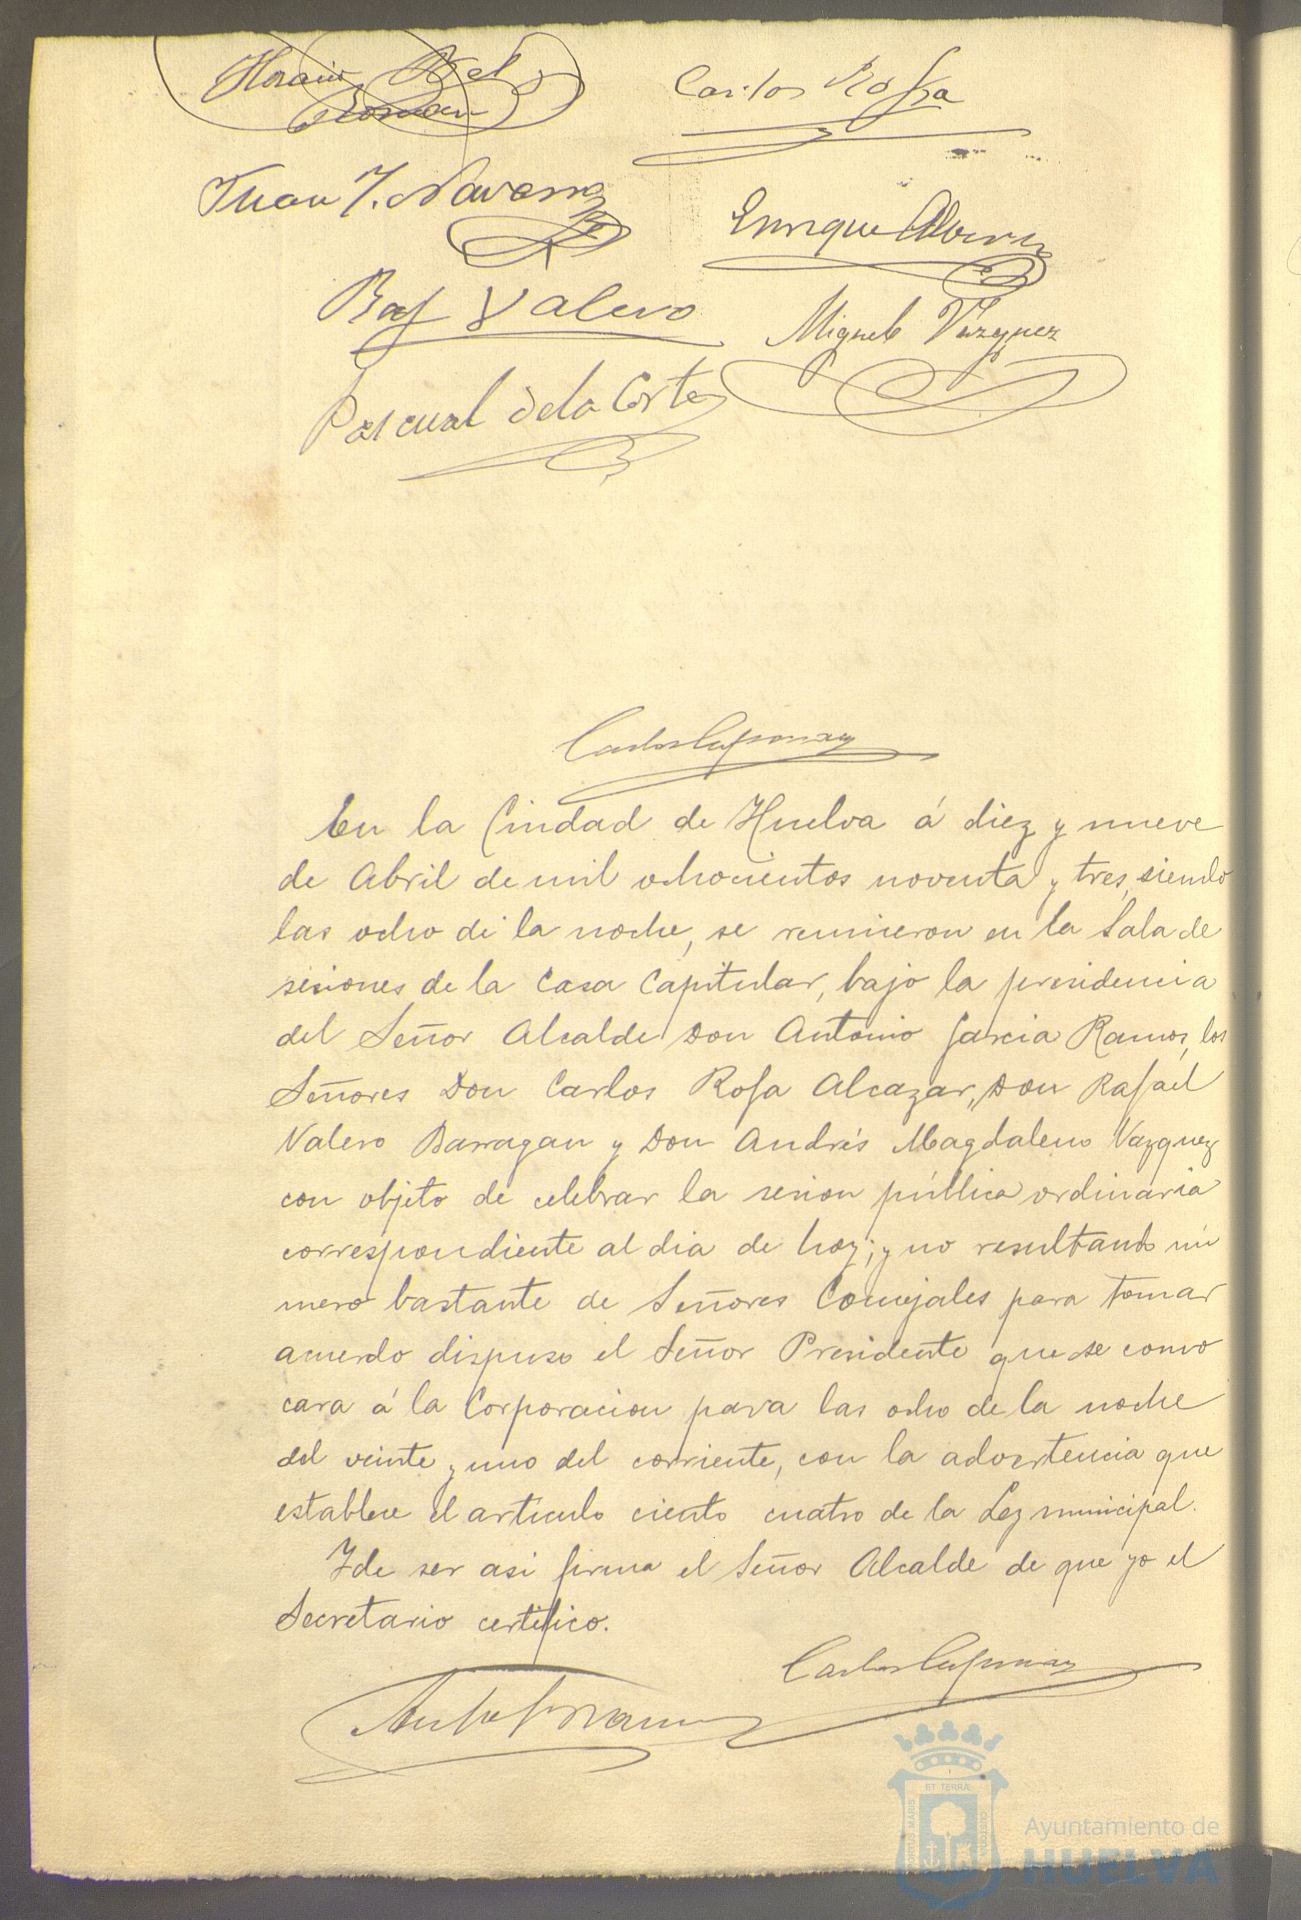 Horacio Bel
Roman
Carlos Rofa
Juan J. Navarro
Enrique
Raf Valero
Miguel Vazquez
Pascual de la Corte
Carlos
En la Ciudad de Huelva á diez y nueve
de Abril de mil ochocientos noventa y tres, siendo
las ocho de la noche, se reunieron en la Sala de
sesiones de la Casa Capitular, bajo la presidencia
del Señor Alcalde Don Antonio Garcia Ramos, los
Señores Don Carlos Rofa Alcazar, Don Rafael
Valero Barragan y Don Andrés Magdaleno Vazquez
con objeto de celebrar la sesion pública ordinaria
correspondiente al dia de hoy; y no resultando nú
mero bastante de Señores Concejales para tomar
acuerdo dispuso el Señor Presidente que se convo
cara á la Corporacion para las ocho de la noche
del veinte y uno del corriente, con la advertencia que
establece el artículo ciento cuatro de la Ley municipal.
Y de ser asi firma el Señor Alcalde de que yo el
Secretario certifico.
Carlos
Ant. G. Ramos
ET TERRÆ
PORTUS MARIS
CUSTODIA
Ayuntamiento de
HUELVA